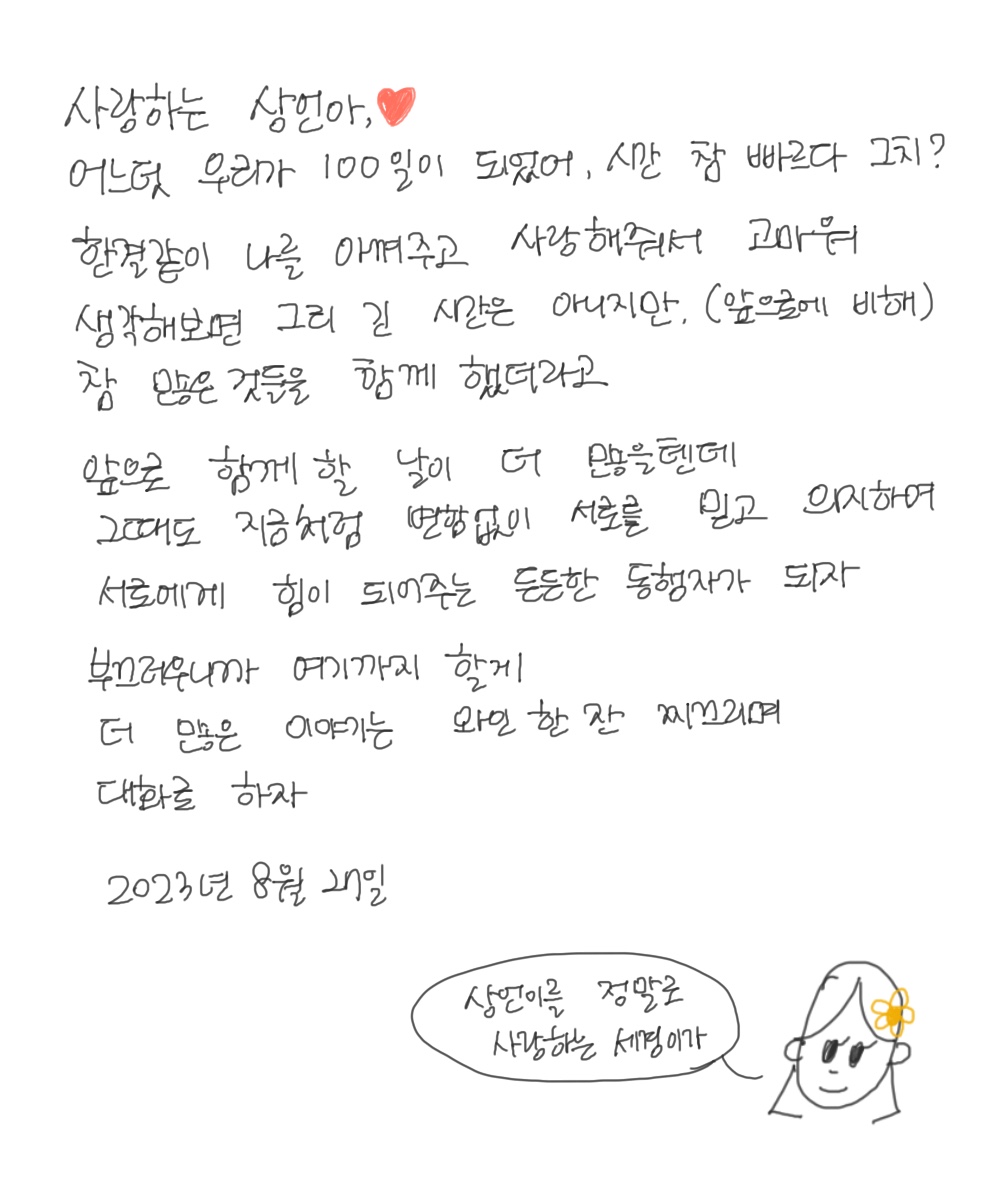 사랑하는 상언아,
어느덧 우리가 100일이 되었어, 시간 참 빠르다 그치?
한결같이 나를 아껴주고 사랑해줘서 고마워
생각해보면 그리 긴 시간은 아니지만, (앞으로에 비해)
참 많은 것들을 함께 했더라고
앞으로 함께 할 날이 더 많을텐데
그때도 지금처럼 변함없이 서로를 믿고 의지하여
서로에게 힘이 되어주는 든든한 동행자가 되자
부끄러우니까 여기까지 할게
더 많은 이야기는 와인 한 잔 찌끄리며
대화로 하자
2023년 8월 27일
상언이를 정말로
사랑하는 세령이가